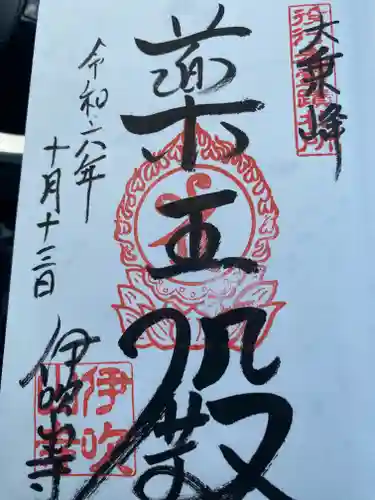 大乗峰
薬王殿
令和六年
十月十三日
伊吹山寺
伊吹
山寺